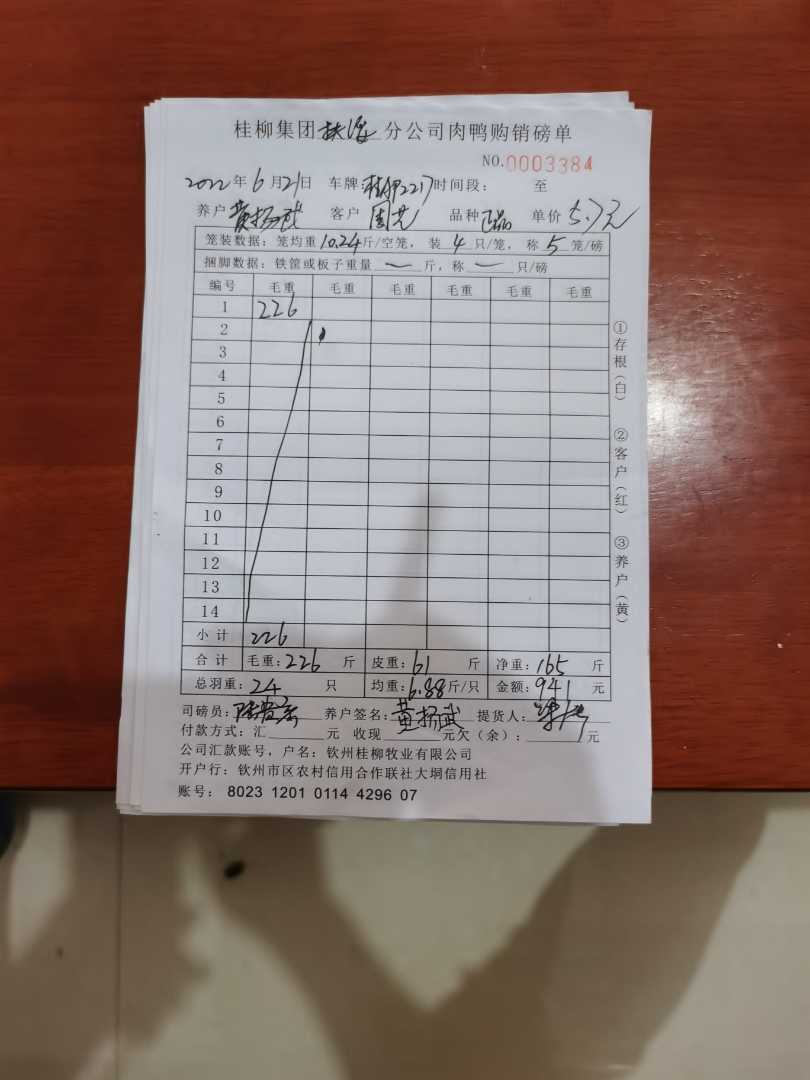 桂柳集团 分公司肉鸭购销磅单
NO.0003384
2022年6月21日 车牌 桂 2217 时间段： 至
养户 黄扬武 客户 周 品种 正品 单价 5.7元
笼装数据：笼均重10.24斤/空笼，装4只/笼，称5笼/磅
捆脚数据：铁筐或板子重量 — 斤，称 — 只/磅
编号 毛重 毛重 毛重 毛重 毛重 毛重
1 226
2
3
4
5
6
7
8
9
10
11
12
13
14
小计 226
合计 毛重：226 斤 皮重：61 斤 净重：165 斤
总羽重：24 只 均重：6.88斤/只 金额：941 元
司磅员： 养户签名：黄扬武 提货人：
付款方式：汇 元 收现 元欠（余）： 元
公司汇款账号，户名：钦州桂柳牧业有限公司
开户行：钦州市区农村信用合作联社大垌信用社
账号：8023 1201 0114 4296 07
①存根（白） ②客户（红） ③养户（黄）